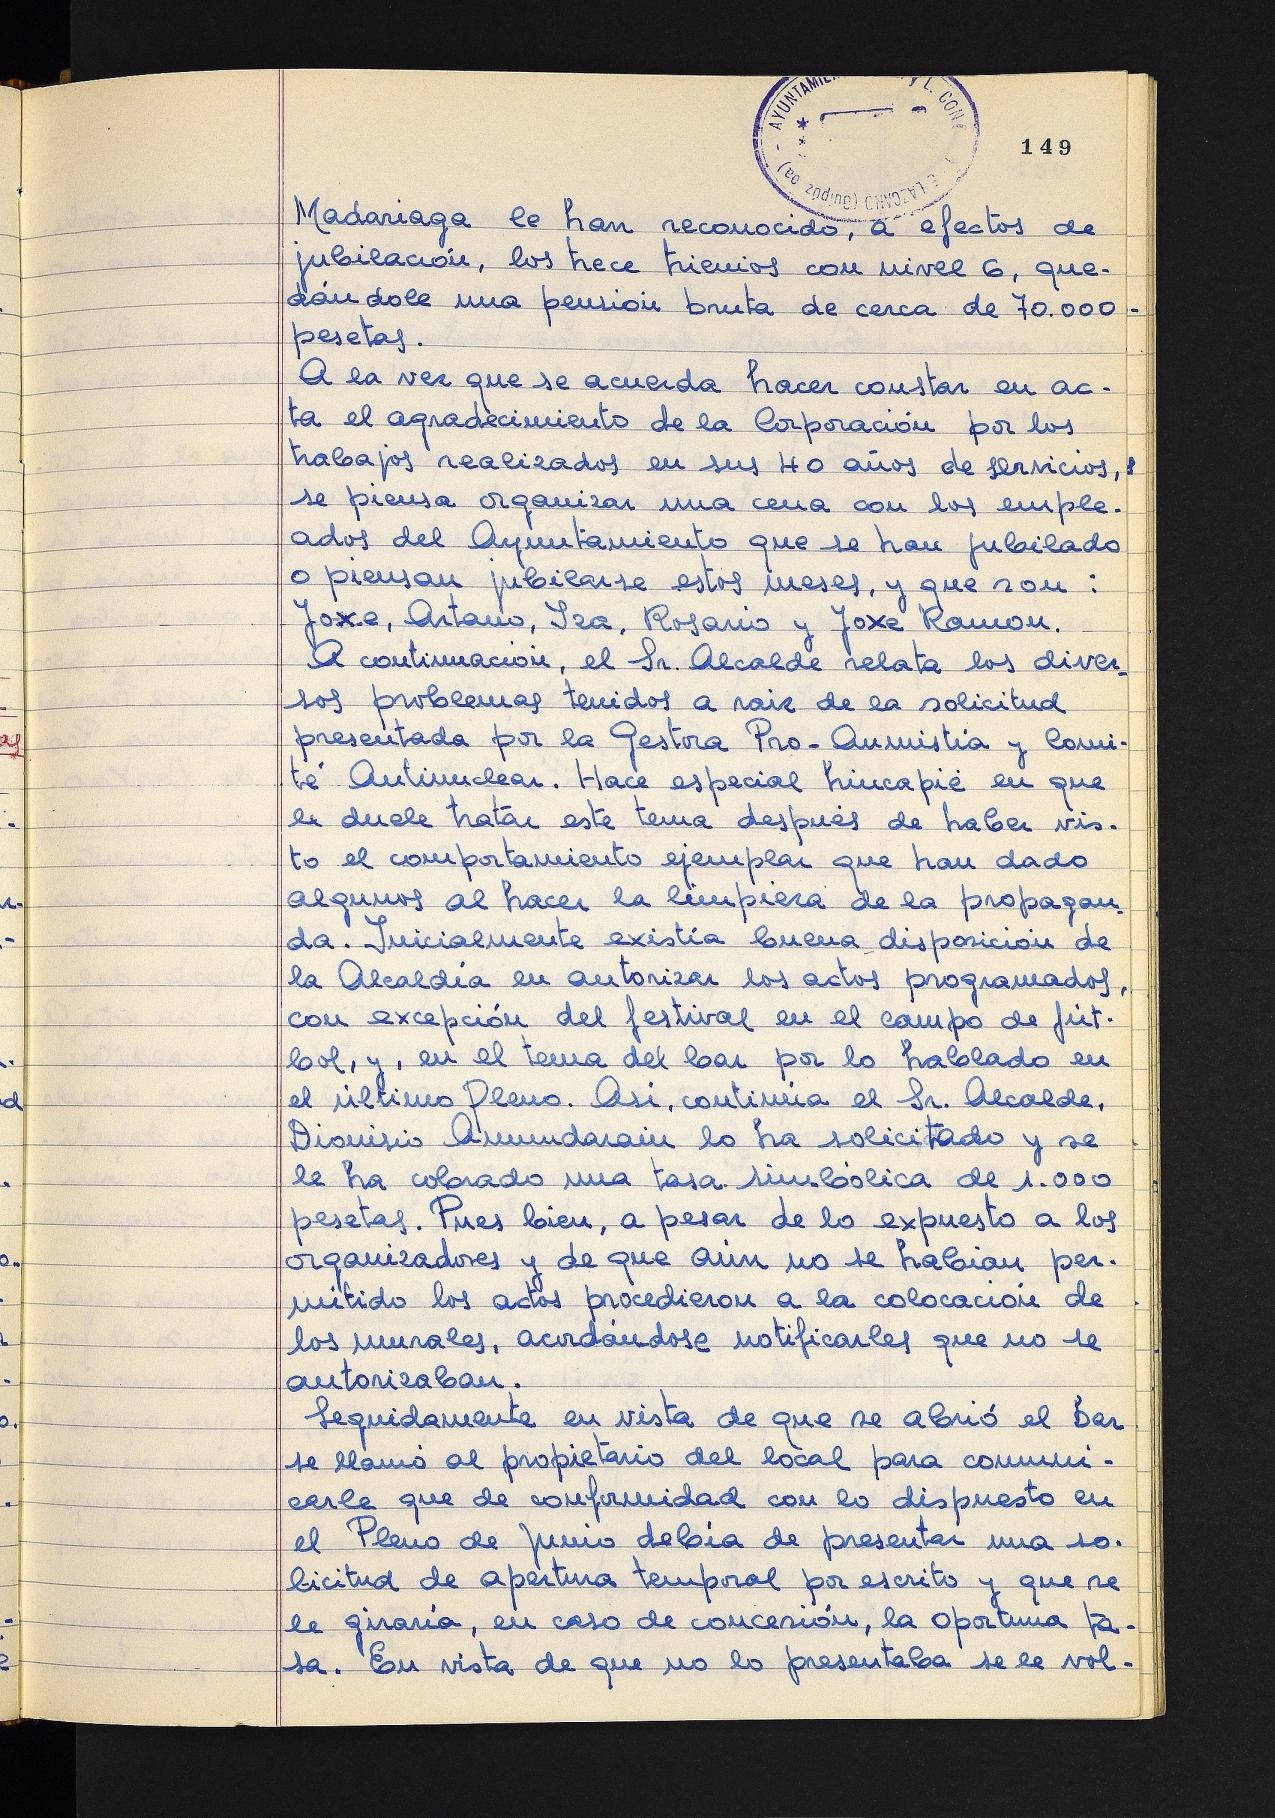 149
Madariaga le han reconocido, a efectos de
jubilación, los trece trienios con nivel 6, que-
dándole una pensión bruta de cerca de 70.000-
pesetas.
A la vez que se acuerda hacer constar en ac-
ta el agradecimiento de la Corporación por los
trabajos realizados en sus 40 años de servicios,
se piensa organizar una cena con los emple-
ados del Ayuntamiento que se han jubilado
o piensan jubilarse estos meses, y que son:
Joxe, Artano, Iza, Rosario y Joxe Ramon.
A continuación, el Sr. Alcalde relata los diver-
sos problemas tenidos a raiz de la solicitud
presentada por la Gestora Pro-Anmistía y Comi-
té Antinuclear. Hace especial hincapié en que
le duele tratar este tema después de haber vis-
to el comportamiento ejemplar que han dado
algunos al hacer la limpieza de la propagan-
da. Inicialmente existía buena disposición de
la Alcaldía en autorizar los actos programados,
con excepción del festival en el campo de fút-
bol, y, en el tema del bar por lo hablado en
el último Pleno. Así, continúa el Sr. Alcalde,
Dionisio Amundarain lo ha solicitado y se
le ha cobrado una tasa simbólica de 1.000
pesetas. Pues bien, a pesar de lo expuesto a los
organizadores y de que aún no se habían per-
mitido los actos procedieron a la colocación de
los murales, acordándose notificarles que no se
autorizaban.
Seguidamente en vista de que se abrió el Bar
se llamó al propietario del local para comuni-
carle que de conformidad con lo dispuesto en
el Pleno de Junio debía de presentar una so-
licitud de apertura temporal por escrito y que se
le giraría, en caso de concesión, la oportuna ta-
sa. En vista de que no lo presentaba se le vol-